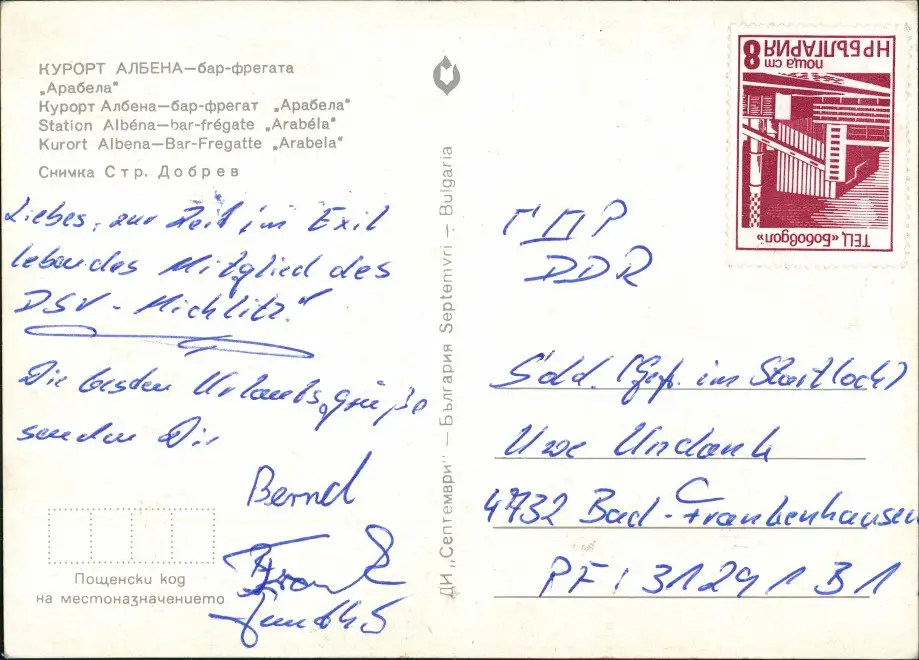 КУРОРТ АЛБЕНА—бар-фрегата
„Арабела"
Курорт Албена—бар-фрегат „Арабела"
Station Albéna—bar-frégate „Arabéla"
Kurort Albena—Bar-Fregatte „Arabela"
Снимка Стр. Добрев
Liebes, zur Zeit im Exil
lebendes Mitglied des
DSV - Michlitz!"
Die besten Urlaubsgrüße
senden Dir
Bernd
Frank
Пощенски код
на местоназначението
ДИ „Септември" — България Septemvri — Bulgaria
НР БЪЛГАРИЯ
поща ст 8
ТЕЦ „Бобовдол"
ГДР
DDR
Sold. (Gef. im Startloch)
Uwe Undank
4732 Bad-Frankenhausen
PF: 31291 B1